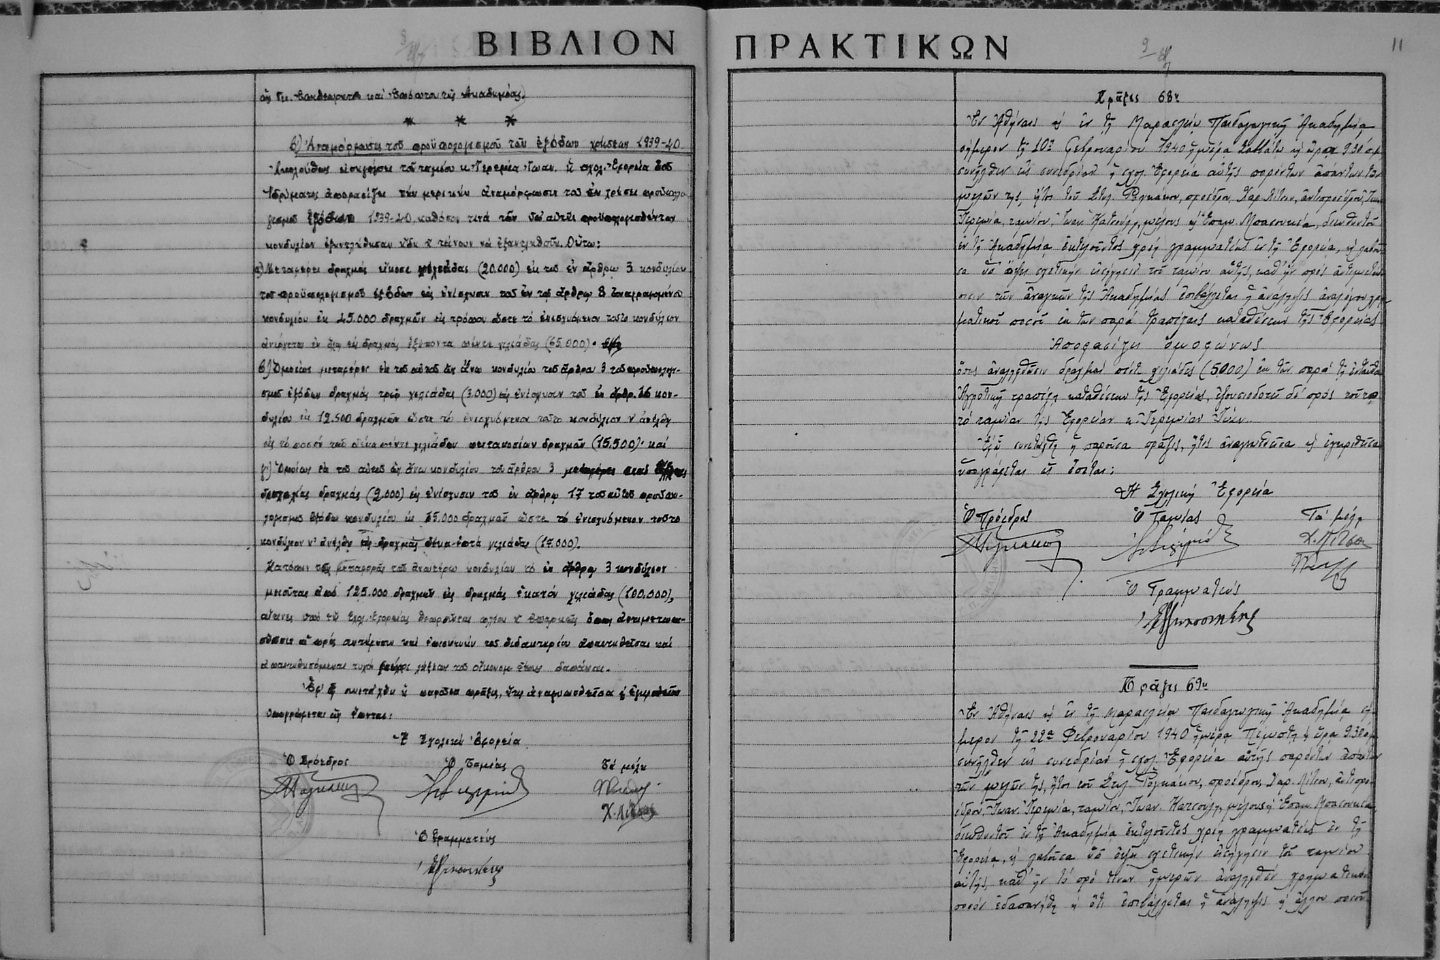 ΒΙΒΛΙΟΝ
καὶ τῆς Ἀκαδημίας.
* * *
β) Ἀναμόρφωσις τοῦ προϋπολογισμοῦ τῶν ἐξόδων χρήσεως 1939-40
Ἀκολούθως τοῦ ταμίου κ. Γερεμία Ἰωάν. ἡ σχολ. Ἐφορεία τοῦ
Ἱδρύματος ἀποφασίζει τὴν μερικὴν ἀναμόρφωσιν τοῦ ἐν χρήσει προϋπολο-
γισμοῦ ἐξόδων 1939-40, καθόσον τινὰ τῶν ὑπ' αὐτοῦ προϋπολογισθέντων
κονδυλίων ἐξηντλήθησαν τείνουν νὰ ἐξαντληθοῦν. Οὕτω:
α) Μεταφέρει δραχμὰς εἴκοσι χιλιάδας (20.000) ἐκ τοῦ ἐν ἄρθρῳ 3 κονδυλίου
τοῦ προϋπολογισμοῦ ἐξόδων εἰς ἐνίσχυσιν τοῦ ἐν τῷ ἄρθρῳ 8 ἀναγραφομένου
κονδυλίου ἐκ 45.000 δραχμῶν εἰς τρόπον ὥστε τὸ ἐνισχυόμενον τοῦτο κονδύλιον
ἀνέρχεται ἐν ὅλῳ εἰς δραχμὰς ἑξήκοντα πέντε χιλιάδας (65.000).
β) Ὁμοίως μεταφέρει ἐκ τοῦ αὐτοῦ ὡς ἄνω κονδυλίου τοῦ ἄρθρου 3 τοῦ προϋπολογι-
σμοῦ ἐξόδων δραχμὰς τρεῖς χιλιάδας (3.000) εἰς ἐνίσχυσιν τοῦ ἐν ἄρθρ. 16 κον-
δυλίου ἐκ 12.500 δραχμῶν ὥστε τὸ ἐνισχυόμενον τοῦτο κονδύλιον ν' ἀνέλθῃ
εἰς τὸ ποσὸν τῶν δέκα πέντε χιλιάδων πεντακοσίων δραχμῶν (15.500)· καὶ
γ) Ὁμοίως ἐκ τοῦ αὐτοῦ ὡς ἄνω κονδυλίου τοῦ ἄρθρου 3
δραχμὰς (2.000) εἰς ἐνίσχυσιν τοῦ ἐν ἄρθρῳ 17 τοῦ αὐτοῦ προϋπο-
λογισμοῦ ἐξόδων κονδυλίου ἐκ 15.000 δραχμῶν ὥστε τὸ ἐνισχυόμενον τοῦτο
κονδύλιον ν' ἀνέλθῃ εἰς δραχμὰς δέκα ἑπτὰ χιλιάδας (17.000).
Κατόπιν τῆς μεταφορᾶς τοῦ ἀνωτέρω κονδυλίου τὸ ἐν ἄρθρῳ 3 κονδύλιον
μειοῦται ἀπὸ 125.000 δραχμῶν εἰς δραχμὰς ἑκατὸν χιλιάδας (100.000),
αἵτινες ὑπὸ τῆς Σχολ. Ἐφορείας θεωροῦνται
τοῦ διδακτηρίου καὶ
δαπάναι.
Ἐφ' ᾧ συνετάχθη ἡ παροῦσα πρᾶξις, ἥτις ἀναγνωσθεῖσα ἐγκριθεῖσα
ὑπογράφεται ὡς ἕπεται:
Ἡ Σχολικὴ Ἐφορεία
Ὁ Πρόεδρος Ὁ Ταμίας Τὰ μέλη
Χ. Λίτσας
Ὁ Γραμματεύς
ΠΡΑΚΤΙΚΩΝ
11
Πρᾶξις 68η
Ἐν Ἀθήναις καὶ ἐν τῇ Μαρασλείῳ Παιδαγωγικῇ Ἀκαδημίᾳ
σήμερον τῇ 10ῃ Φεβρουαρίου 1940 ἡμέρᾳ Σαββάτῳ καὶ ὥρᾳ 9.30 π.μ.
συνῆλθεν εἰς συνεδρίαν ἡ σχολ. Ἐφορεία αὐτῆς παρόντων ἁπάντων τῶν
μελῶν της, ἤτοι τοῦ Στυλ. προέδρου, Χαρ. Λίτσα, ἀντιπροέδρου, Ἰωάν.
Γερεμία, ταμίου, Ἰωάν. μέλους καὶ Ἐπαμ. διευθυντοῦ
ἐν τῇ Ἀκαδημίᾳ ἐκτελοῦντος χρέη γραμματέως ἐν τῇ Ἐφορείᾳ, καὶ λαβοῦ-
σα ὑπ' ὄψει σχετικὴν εἰσήγησιν τοῦ ταμίου αὐτῆς, καθ' ἣν πρὸς ἀντιμετώπι-
σιν τῶν ἀναγκῶν τῆς Ἀκαδημίας ἐπιβάλλεται ἡ ἀνάληψις ἀναλόγου χρη-
ματικοῦ ποσοῦ ἐκ τῶν παρὰ Τραπέζαις καταθέσεων τῆς Ἐφορείας
Ἀποφασίζει ὁμοφώνως
ὅπως ἀναληφθῶσιν δραχμαὶ πέντε χιλιάδες (5000) ἐκ τῶν παρὰ τῇ ἐνταῦθα
Ἀγροτικῇ τραπέζῃ καταθέσεων τῆς Ἐφορείας, ἐξουσιοδοτεῖ δὲ πρὸς τοῦτο
τὸν ταμίαν τῆς Ἐφορείας κ. Γερεμίαν Ἰωάν.
Ἐφ' ᾧ συνετάχθη ἡ παροῦσα πρᾶξις, ἥτις ἀναγνωσθεῖσα καὶ ἐγκριθεῖσα
ὑπογράφεται ὡς ἕπεται:
Ἡ Σχολικὴ Ἐφορεία
Ὁ Πρόεδρος Ὁ Ταμίας Τὰ μέλη
Χ. Λίτσας
Ὁ Γραμματεύς
Πρᾶξις 69η
Ἐν Ἀθήναις καὶ ἐν τῇ Μαρασλείῳ Παιδαγωγικῇ Ἀκαδημίᾳ σή-
μερον τῇ 22ᾳ Φεβρουαρίου 1940 ἡμέρᾳ Πέμπτῃ καὶ ὥρᾳ 9.30 π.μ.
συνῆλθεν εἰς συνεδρίαν ἡ σχολ. Ἐφορεία αὐτῆς παρόντων ἁπάντων
τῶν μελῶν της, ἤτοι τοῦ Στυλ. προέδρου, Χαρ. Λίτσα, ἀντιπρο-
έδρου, Ἰωάν. Γερεμία, ταμίου, Ἰωάν. μέλους καὶ Ἐπαμ.
διευθυντοῦ ἐν τῇ Ἀκαδημίᾳ ἐκτελοῦντος χρέη γραμματέως ἐν τῇ
Ἐφορείᾳ, καὶ λαβοῦσα ὑπ' ὄψει σχετικὴν εἰσήγησιν τοῦ ταμίου
αὐτῆς, καθ' ἣν τὸ πρό τινων ἡμερῶν ἀναληφθὲν χρηματικὸν
ποσὸν ἐδαπανήθη καὶ ὅτι ἐπιβάλλεται ἡ ἀνάληψις καὶ ἄλλου ποσοῦ